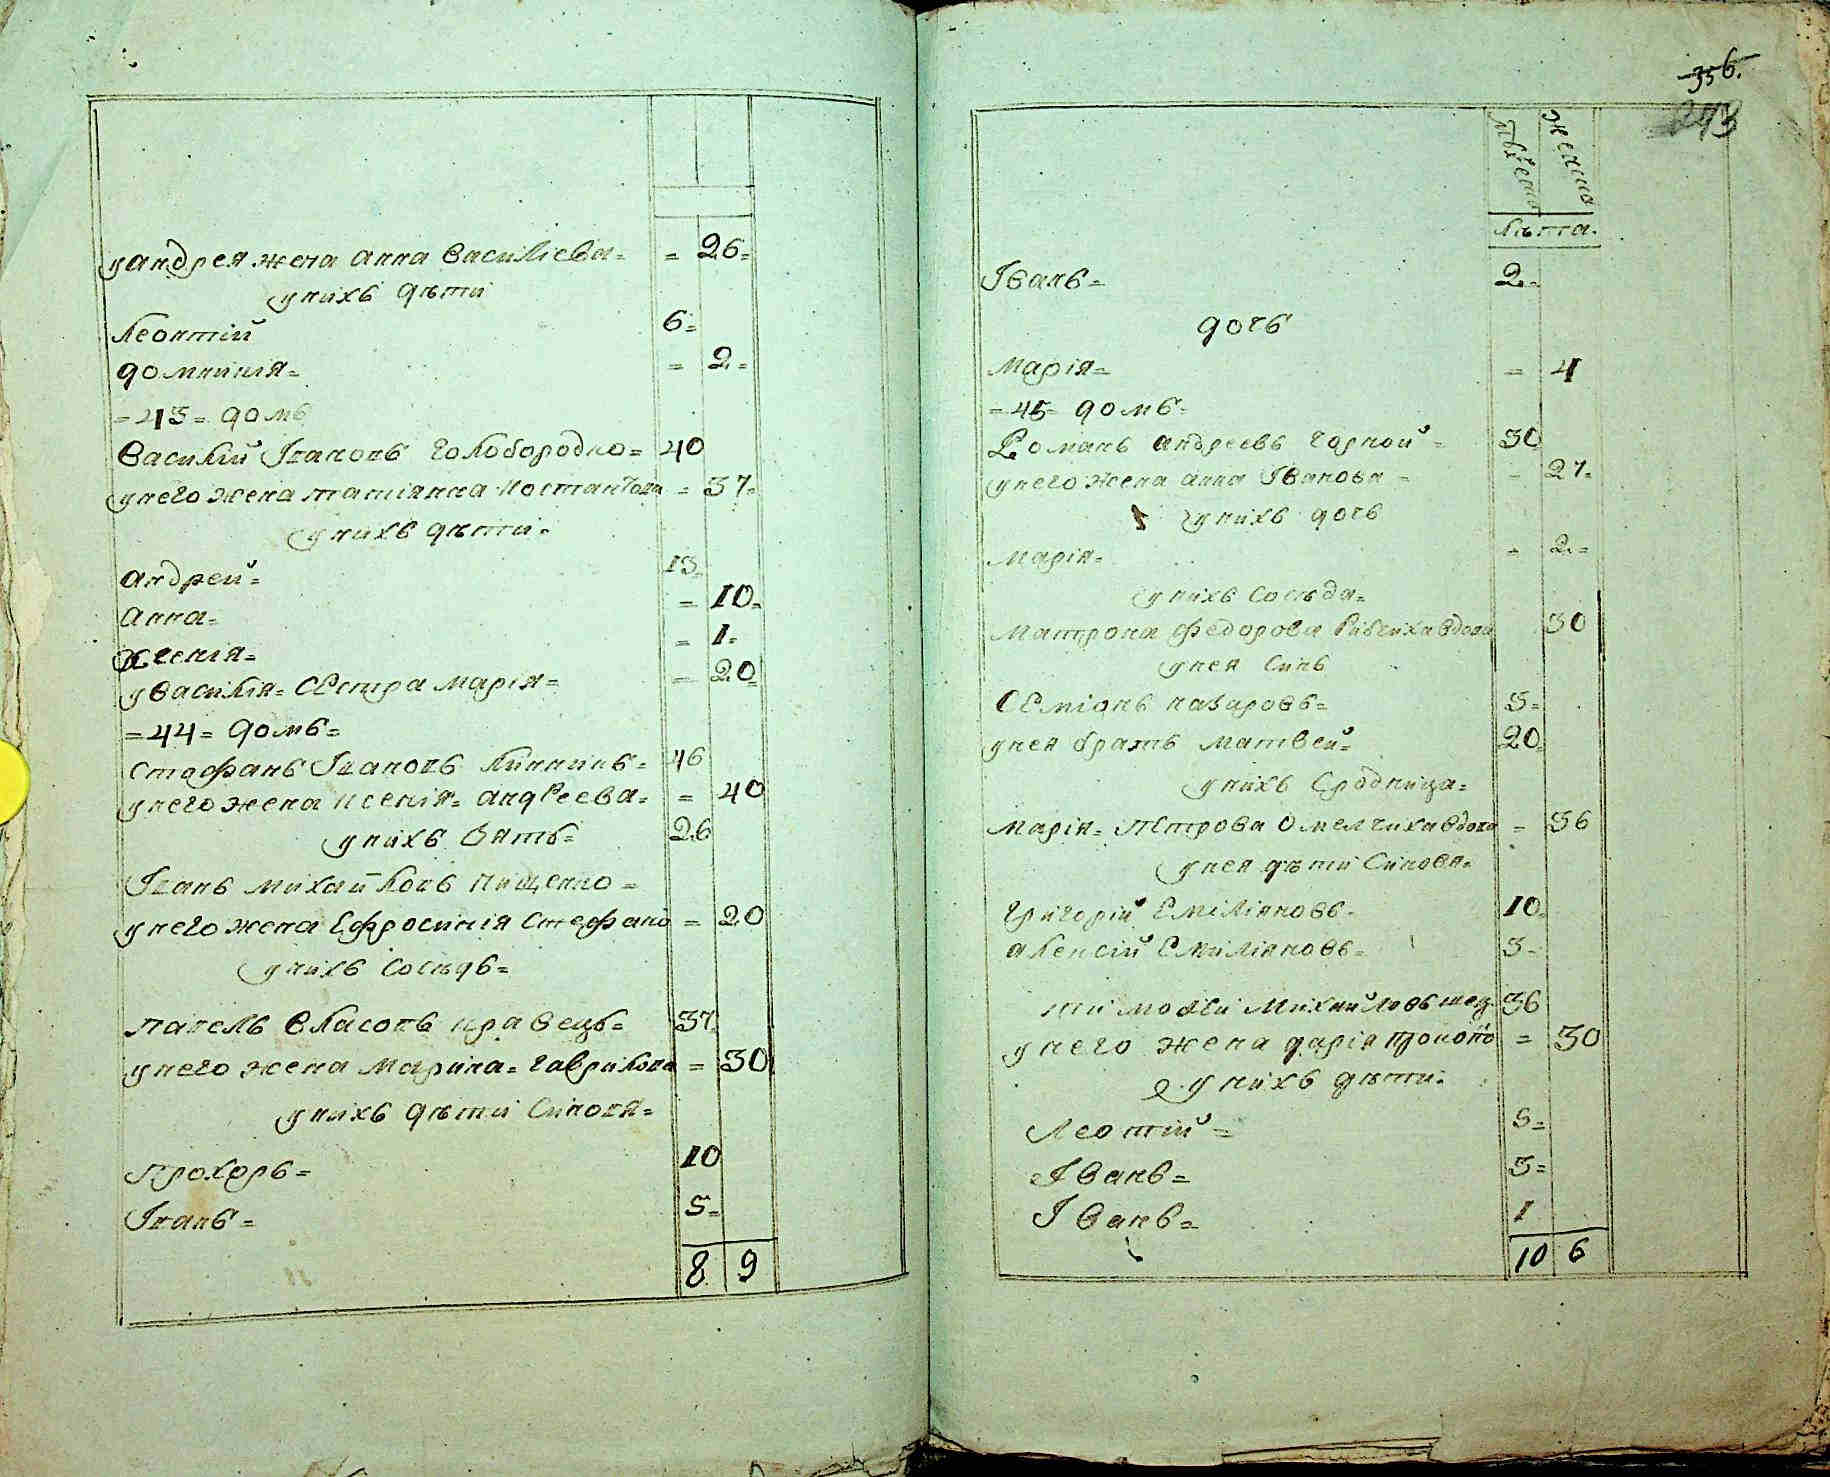 у андрея жена анна василіева = = 26 =
у нихъ дѣти
леонтій 6 =
домникія = = 2 =
= 43 = домъ
василій Івановъ голобородко = 40
у него жена татіянна константова = 37 =
у нихъ дѣти =
андрей = 13 =
анна = = 10 =
ксенія = = 1 =
у василія = сестра марія = = 20 =
= 44 = домъ =
стефанъ Івановъ = 46
у него жена ксенія = андреева = = 40
у нихъ зять = 26
Іванъ михайловъ пищенко =
у него жена ефросинія стефано = 20
у нихъ сосѣдъ =
павелъ власовъ кравецъ = 37
у него жена марина = гаврилова = 30
у нихъ дѣти синовя =
прохоръ = 10
Іванъ = 5 =
8 9
356.
243
мужеска женска
лѣта.
Іванъ = 2 =
дочь
марія = = 4
= 45 = домъ =
Романъ андреевъ горной = 30
у него жена анна Іванова = = 27 =
у нихъ дочь
марія = = 2 =
у нихъ сосѣда =
матрона федорова вдова 30
у нея синъ
семіонъ назаровъ = 3 =
у нея братъ матвей = 20
у нихъ сродница =
марія = петрова омелчиха вдова = 36
у нея дѣти синовя =
григорій емиліяновъ = 10
алексій емиліяновъ = 3 =
тимофей михайловъ швец 36
у него жена дарія прокопо = 30
у нихъ дѣти =
леотій = 5 =
Іванъ = 3 =
Іванъ = 1
10 6